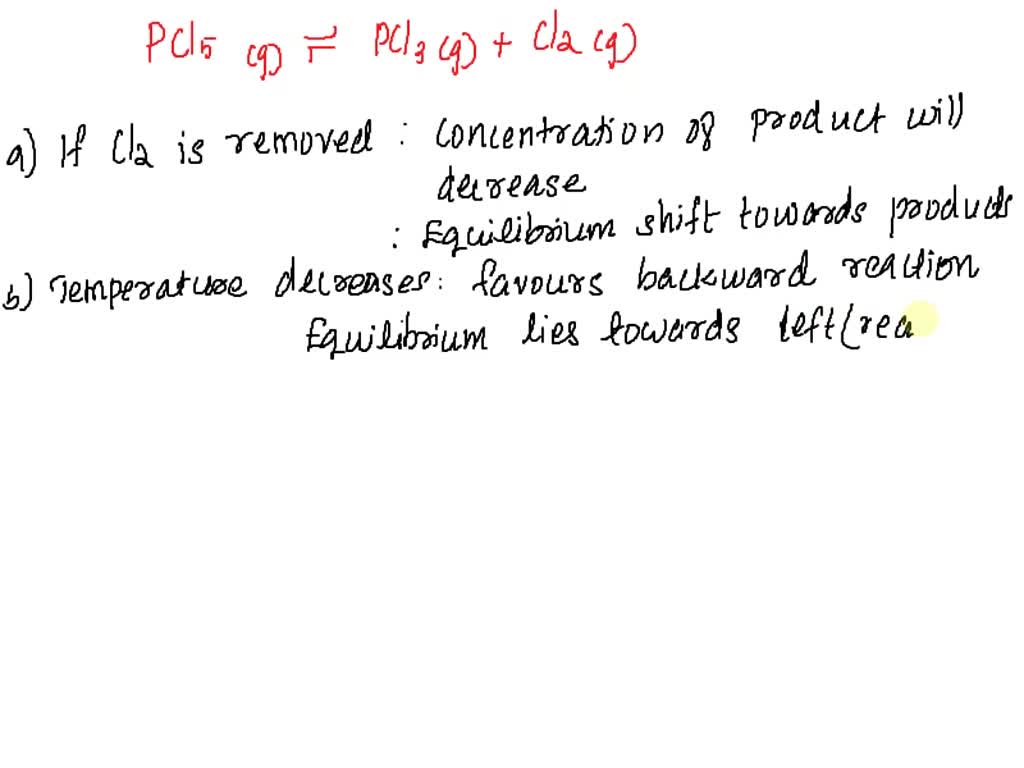 PCl5 (g) ⇌ PCl3 (g) + Cl2 (g)
a) If Cl2 is removed : Concentration of product will
decrease
: Equilibrium shift towards products
b) Temperature decreases: favours backward reaction
Equilibrium lies towards left (rea